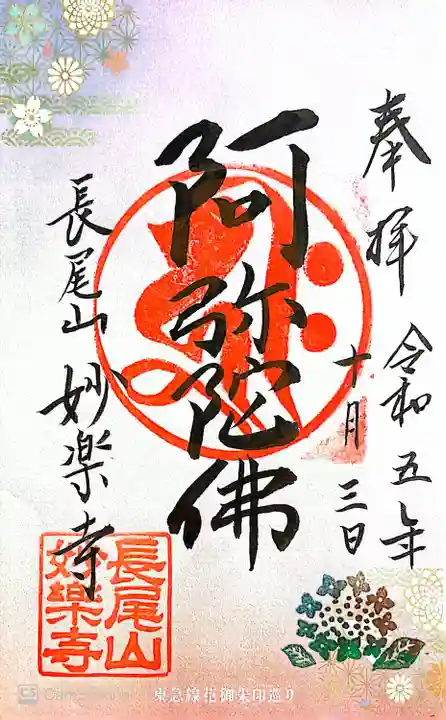 奉拝
令和五年
十月三日
阿弥陀佛
長尾山妙楽寺
長尾山
妙樂寺
東急線花御朱印巡り
CS